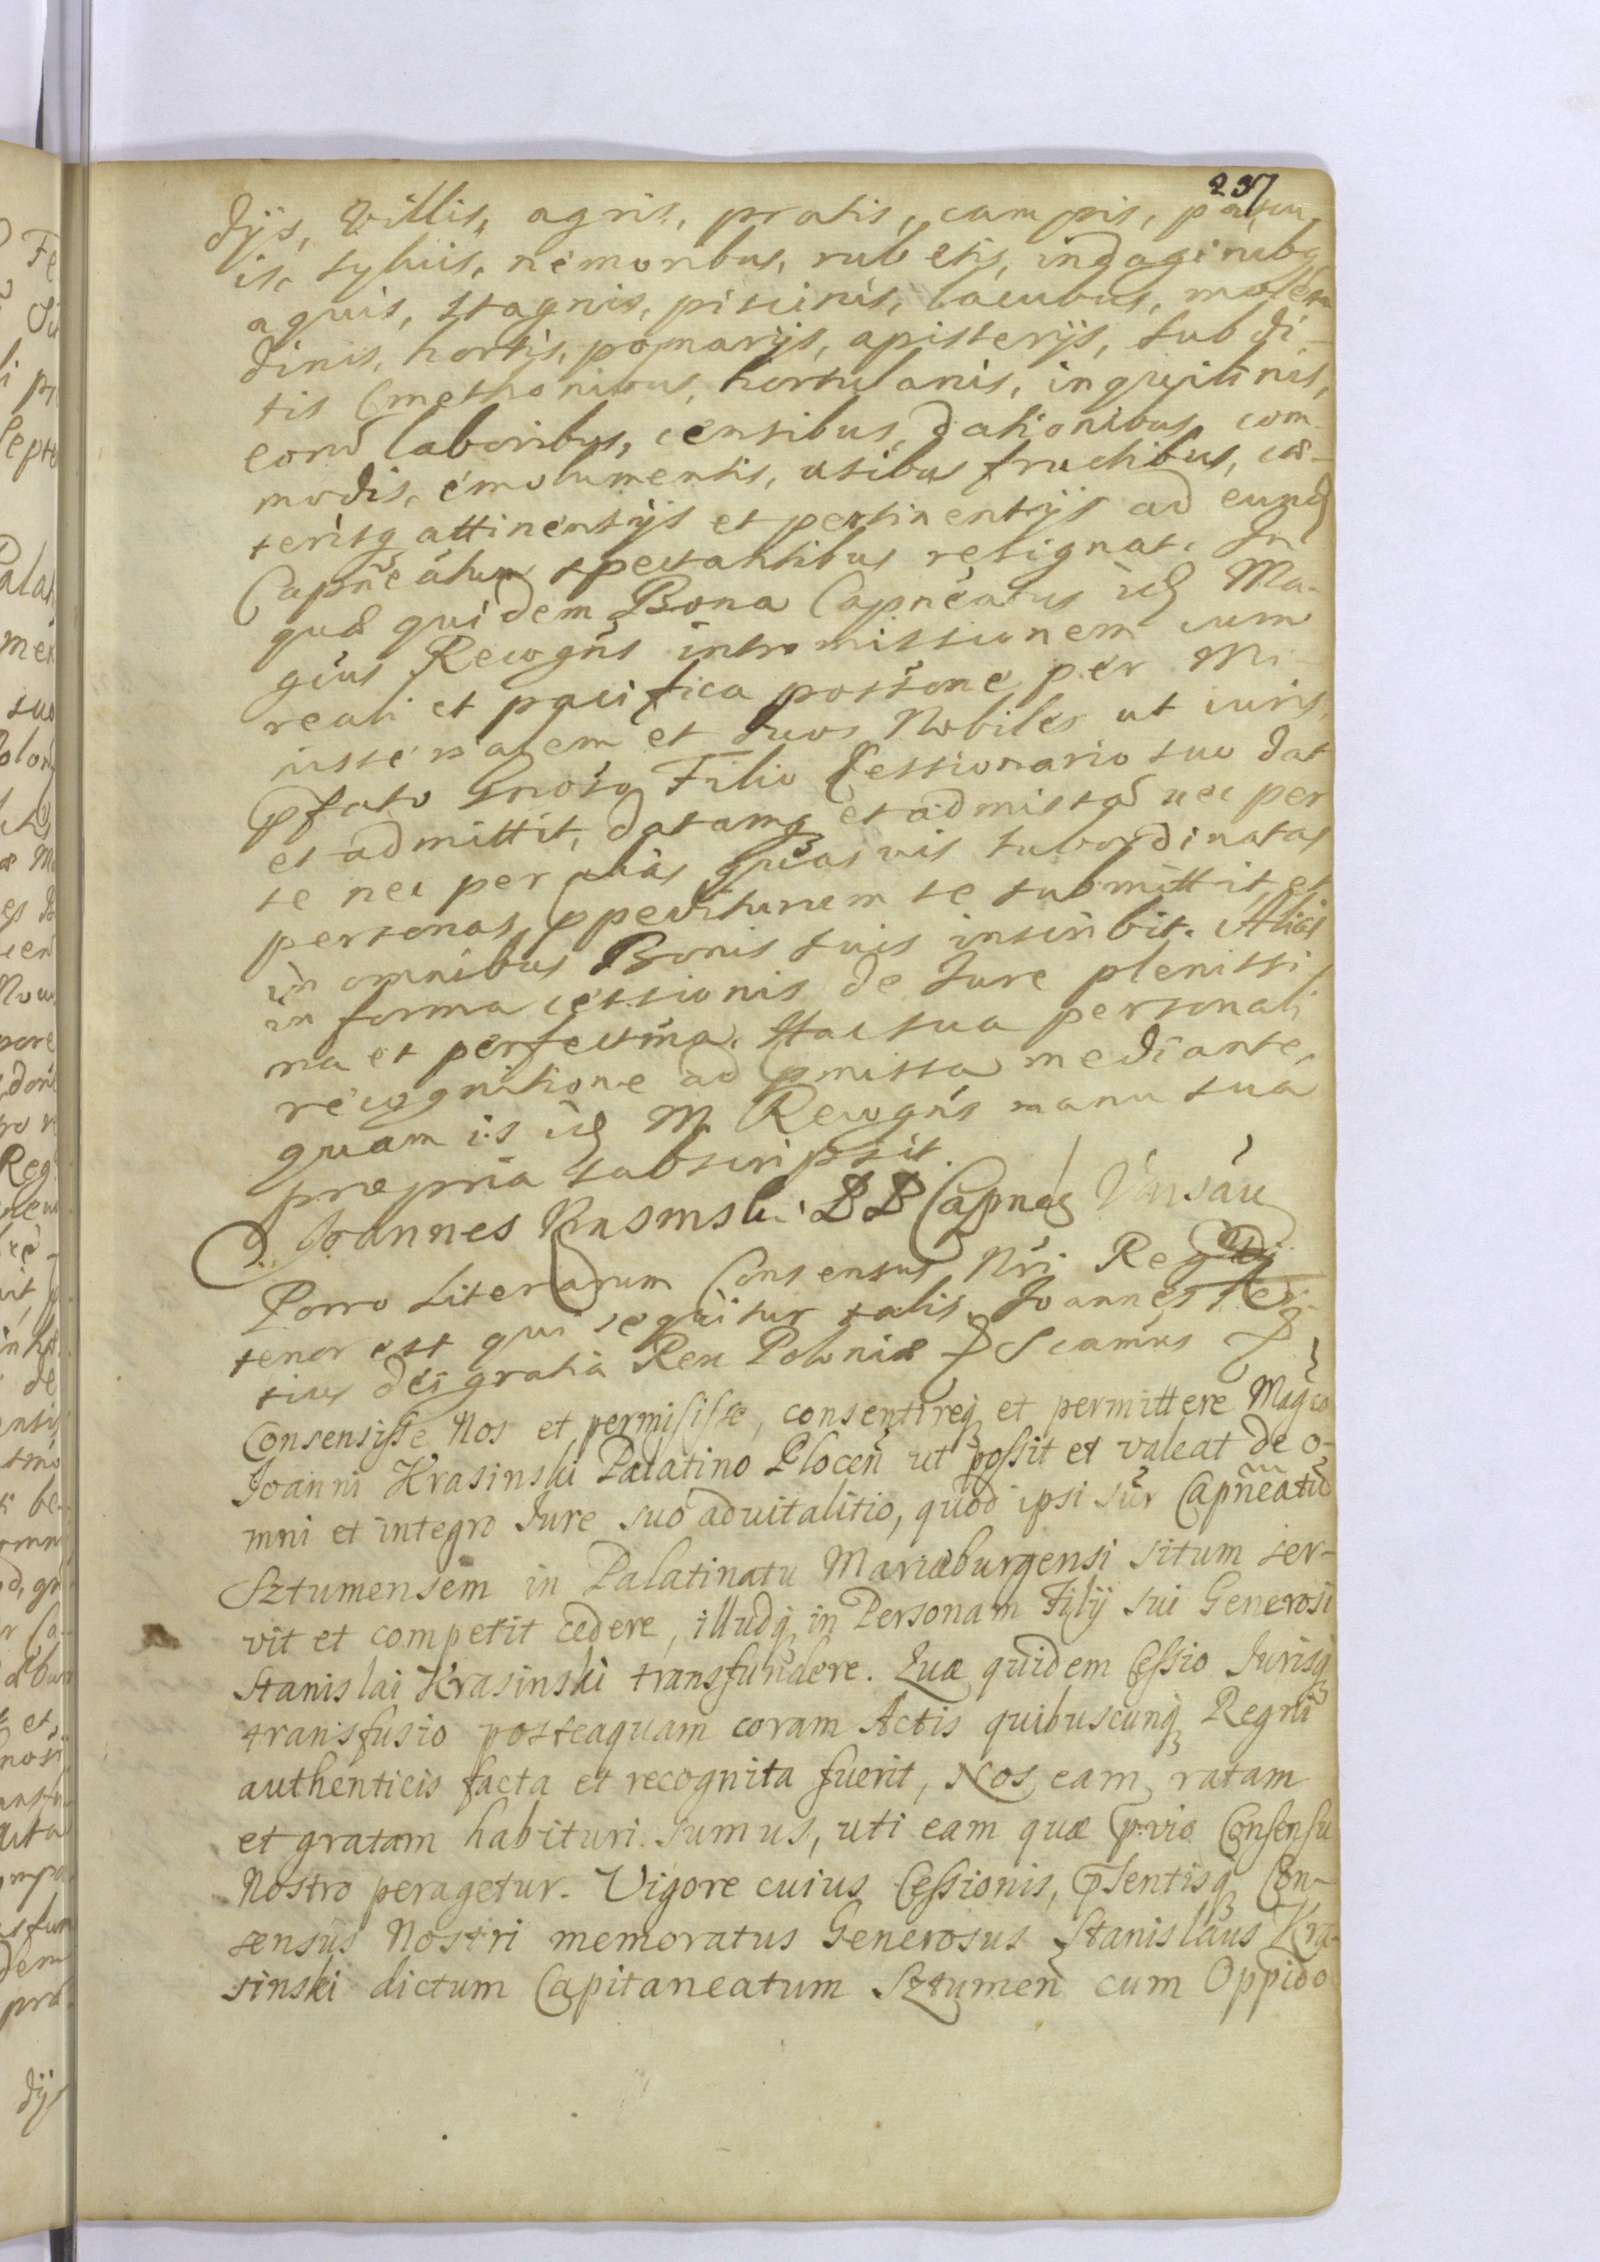 237
dijs, Villis, agris, pratis, campis, pascu
is, syluis, nemoribus, rubetis, indaginibq
aquis, stagnis, piscinis, lacubus, molen
dinis, hortis, pomarijs, apisterijs, subdi-
tis Cmethonibus, hortulanis, inquilinis,
eorũ laboribus, censibus, dationibus, com
modis, emolumentis, usibus fructibus, cæ-
terisq attinentijs et pertinentijs ad eund
Capñeatum spectantibus resignat. In
quæ quidem Bona Capneatus id Ma-
gcus Recogñs intromissionem cum
reali et pacifica possõne per Mi-
nisterialem et duos Nobiles ut iuris,
pfato Gnoso Filio Cessionario suo dat
et admittit, datamq et admissã nec per
se nec per alias quasuis subordinatas
personas, ppediturum se submittit, et
in omnibus Bonis suis inscribit. Alias
in forma cessionis de Iure plenissi
ma et perfectma. Hac sua personali
recognitione ad pmissa mediante,
quam is id M. Recogñs manu sua
propria subscripsit.
Joannes Krasinski PP Capneq Varsau
Porro Literarum Consensus Nri Reg
tenor est qui sequitur talis. Joannes Ter
tius dei gratia Rex Poloniæ & Scamus &
Consensisse Nos et permisisse, consentireq et permittere Magco
Joanni Krasinski Palatino Plocen ut possit et valeat de o-
mni et integro Iure suo aduitalitio, quod ipsi sur Capñeatũ
Sztumensem in Palatinatu Mariæburgensi situm ser-
vit et competit cedere, illudq in Personam Filij sui Generosi
Stanislai Krasinski transfundere. Quæ quidem Cessio Iurisq
transfusio posteaquam coram Actis quibuscunq Regni
authenticis facta et recognita fuerit, Nos eam ratam
et gratam habituri sumus, uti eam quæ pvio Consensu
Nostro peragetur. Vigore cuius Cessionis, psentisq Con-
sensus Nostri memoratus Generosus Stanislaus Kra-
sinski dictum Capitaneatum Sztumen cum Oppido